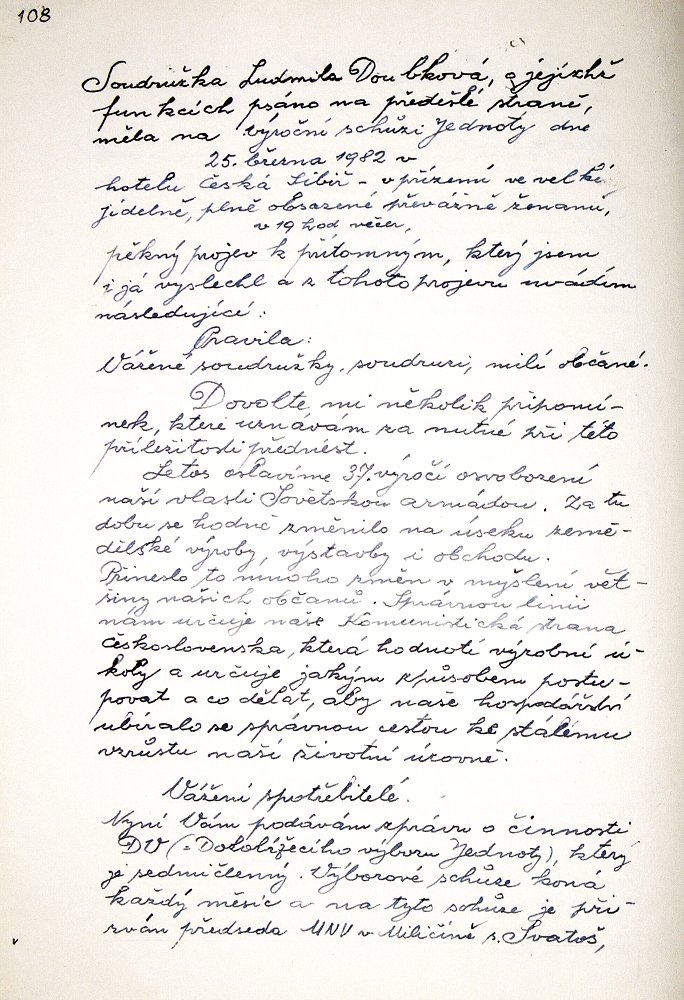 108
Soudružka Ludmila Doubková, o jejíchž
funkcích psáno na předešlé straně,
měla na výroční schůzi Jednoty dne
25. března 1982 v
hotelu Česká Sibiř - v přízemí ve velké
jídelně, plně obsazené převážně ženami,
v 19 hod večer,
pěkný projev k přítomným, který jsem
i já vyslechl a z tohoto projevu uvádím
následující:
Pravila:
Vážené soudružky, soudruzi, milí občané.
Dovolte mi několik připomí-
nek, které uznávám za nutné při této
příležitosti přednést.
Letos oslavíme 37. výročí osvobození
naší vlasti Sovětskou armádou. Za tu
dobu se hodně změnilo na úseku země-
dělské výroby, výstavby i obchodu.
Přineslo to mnoho změn v myšlení vět-
šiny našich občanů. Správnou linii
nám určuje naše Komunistická strana
Československa, která hodnotí výrobní ú-
koly a určuje jakým způsobem postu-
povat a co dělat, aby naše hospodářství
ubíralo se správnou cestou ke stálému
vzrůstu naší životní úrovně.
Vážení spotřebitelé.
Nyní Vám podávám zprávu o činnosti
DV (= Dohlížecího výboru Jednoty), který
je sedmičlenný. Výborové schůze koná
každý měsíc a na tyto schůze je při-
zván předseda MNV v Miličíně s. Svatoš,